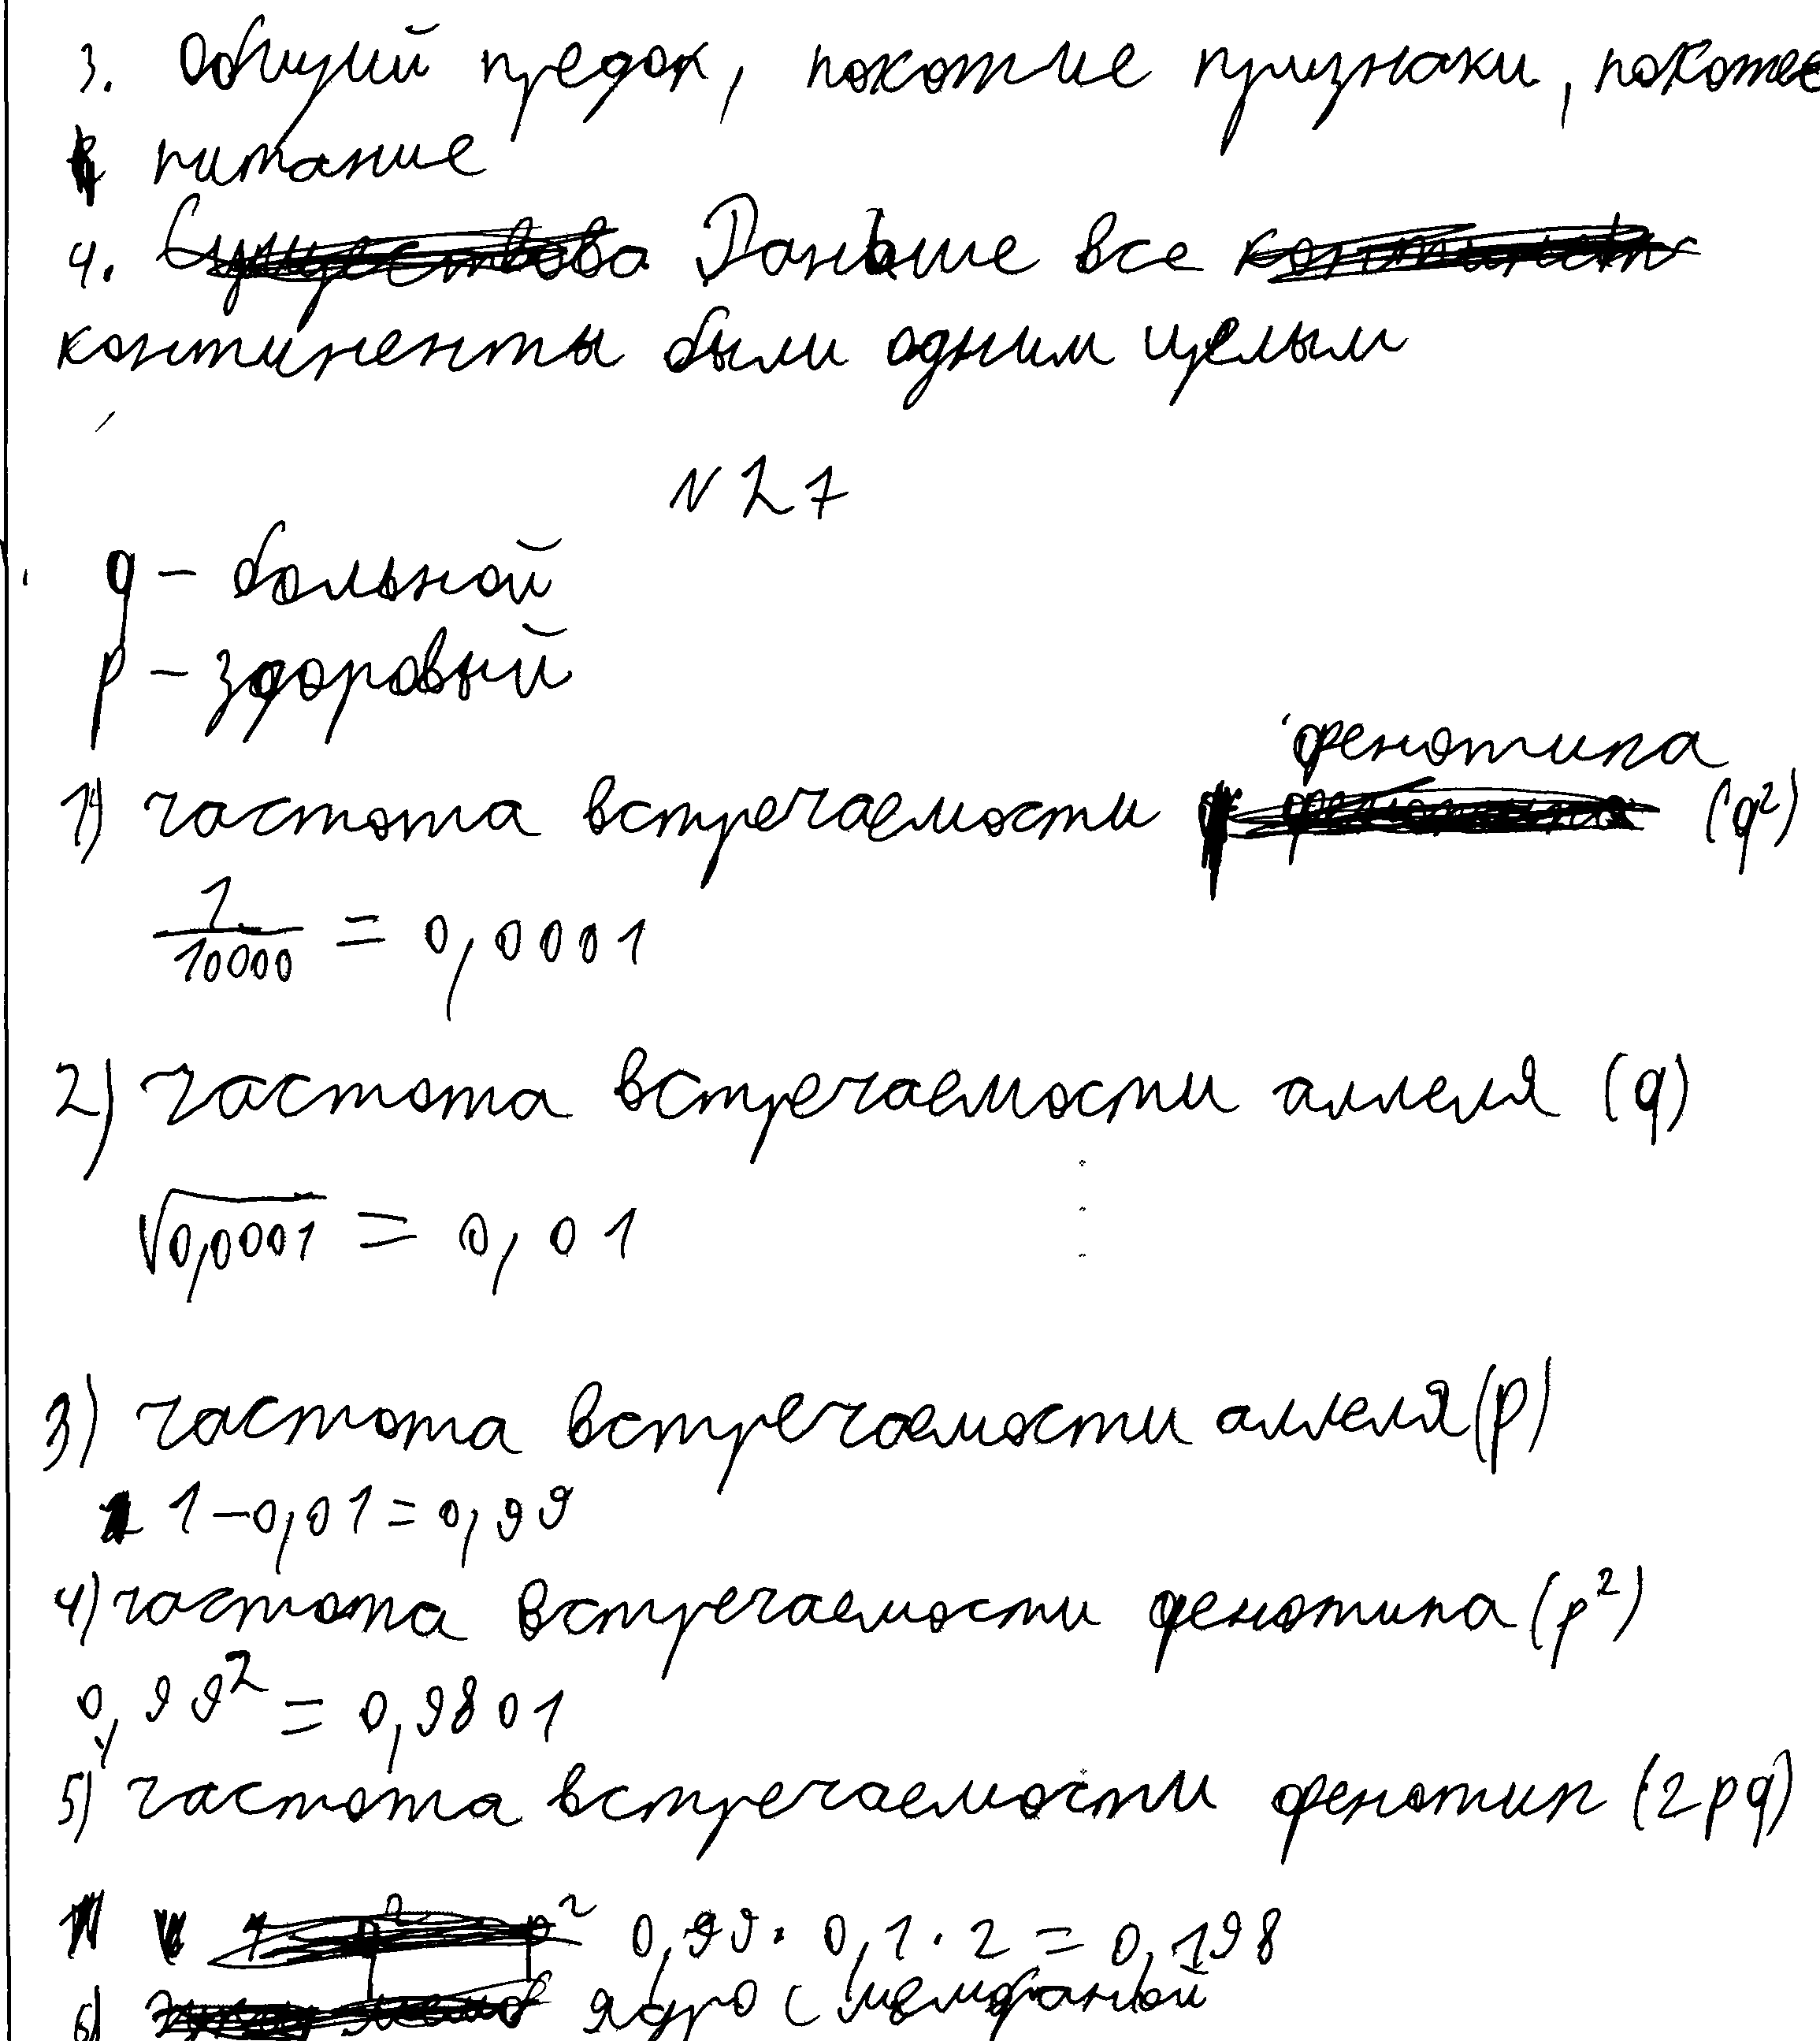 3. Общий предок, похожие признаки, похожее
питание
4. Раньше все
континенты были одним целым
№ 27
q - больной
p - здоровый
фенотипа
1) частота встречаемости (q²)
1/10000 = 0,0001
2) частота встречаемости аллеля (q)
√0,0001 = 0,01
3) частота встречаемости аллеля (p)
1 - 0,01 = 0,99
4) частота встречаемости фенотипа (p²)
0,99² = 0,9801
5) частота встречаемости фенотип (2pq)
0,99 · 0,1 · 2 = 0,198
6) ядро с мембраной